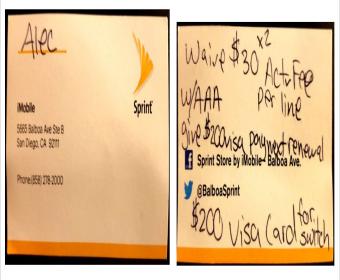 Alec
Sprint
iMobile
5665 Balboa Ave Ste B
San Diego, CA 92111
Phone:(858) 278-2000
Waive $30 x2
Act. Fee
w/AAA per line
give $200 visa payment renewal
Sprint Store by iMobile - Balboa Ave.
@BalboaSprint
$200 Visa Card for switch